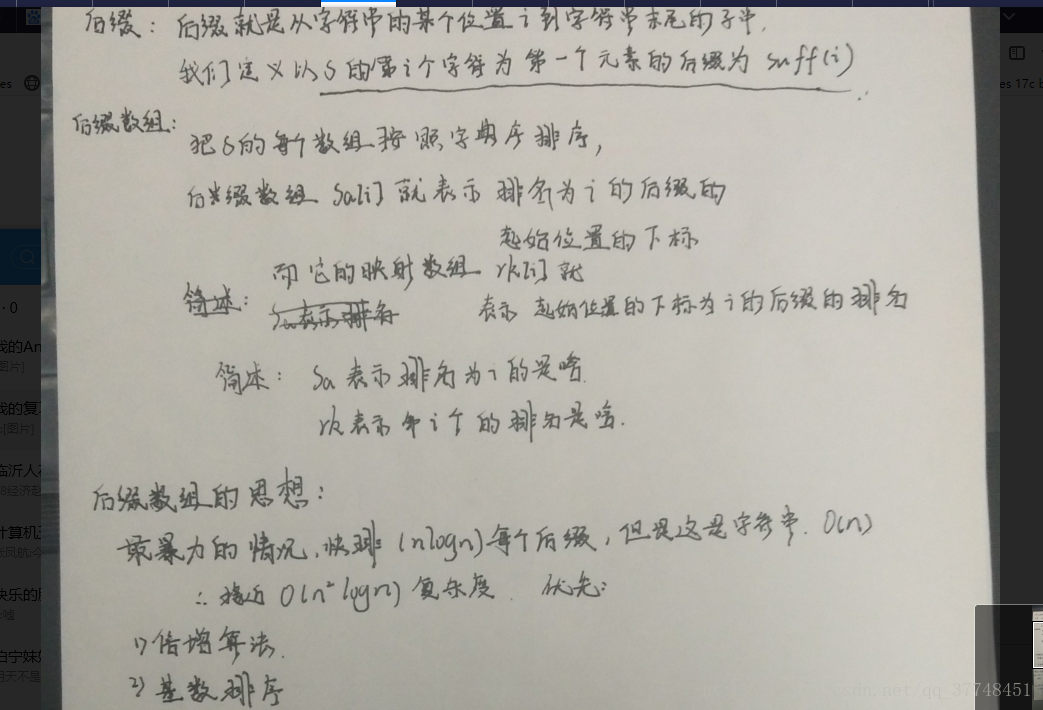 后缀: 后缀就是从字符串的某个位置i到字符串末尾的子串.
我们定义以S的第i个字符为第一个元素的后缀为 suff(i)
后缀数组:
把S的每个数组按照字典序排序,
后缀数组 Sa[i] 就表示 排名为i的后缀的
起始位置的下标
而它的映射数组 rk[i] 就
简述:
Sa表示排名
表示 起始位置的下标为i的后缀的排名
简述: Sa 表示排名为i的是啥.
rk表示第i个的排名是啥.
后缀数组的思想:
最暴力的情况,快排(nlogn)每个后缀,但是这是字符串. O(n)
∴ 接近 O(n²logn) 复杂度. 优先:
1) 倍增算法.
2) 基数排序
csdn.net/qq_37748451
es
es 17c
· 0
我的An
图片]
我的复
[图片]
临沂人
计算机
快乐的